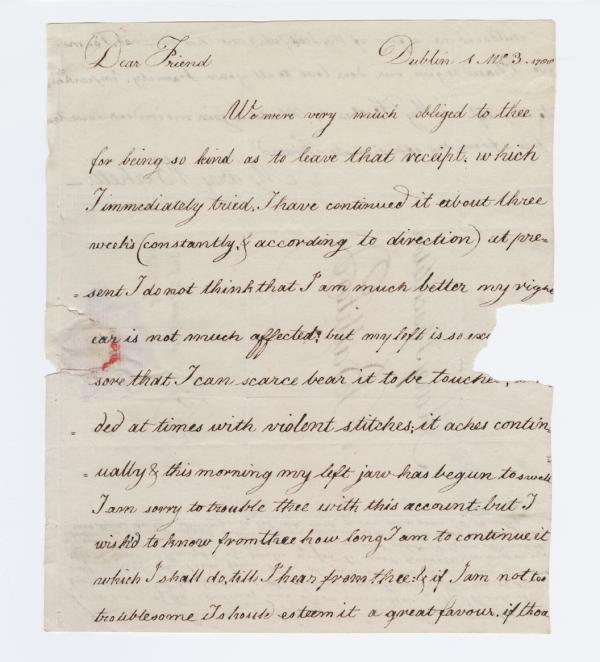 Dear Friend Dublin 1 Mo 3. 1788
We were very much obliged to thee
for being so kind as to leave that receipt: which
I immediately tried, I have continued it about three
weeks (constantly, & according to direction) at pre=
=sent I do not think that I am much better my right
ear is not much affected: but my left is so
sore that I can scarce bear it to be touched
ded at times with violent stitches; it aches contin=
=ually & this morning my left jaw has begun to swell
I am sorry to trouble thee with this account: but I
wish'd to know from thee how long I am to continue it
which I shall do, till I hear from thee: & if I am not too
troublesome I should esteem it a great favour, if thou